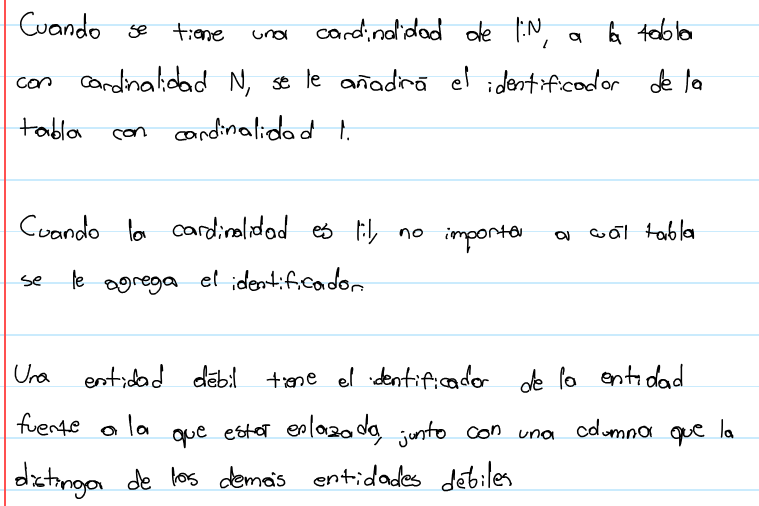 Cuando se tiene una cardinalidad de 1:N, a la tabla
con cardinalidad N, se le añadirá el identificador de la
tabla con cardinalidad 1.
Cuando la cardinalidad es 1:1, no importa a cuál tabla
se le agrega el identificador.
Una entidad débil tiene el identificador de la entidad
fuerte a la que está enlazada, junto con una columna que la
distinga de los demás entidades débiles